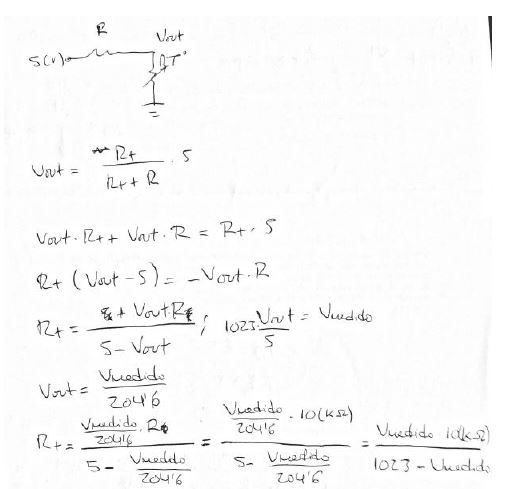 R Vout
5(V) T°
Vout = Rt / (Rt + R) · 5
Vout · Rt + Vout · R = Rt · 5
Rt (Vout - 5) = -Vout · R
Rt = + Vout R / (5 - Vout) ; 1023 · Vout / 5 = Vmedido
Vout = Vmedido / 204'6
Rt = (Vmedido / 204'6 · R) / (5 - Vmedido / 204'6) = (Vmedido / 204'6 · 10(KΩ)) / (5 - Vmedido / 204'6) = Vmedido · 10(KΩ) / (1023 - Vmedido)